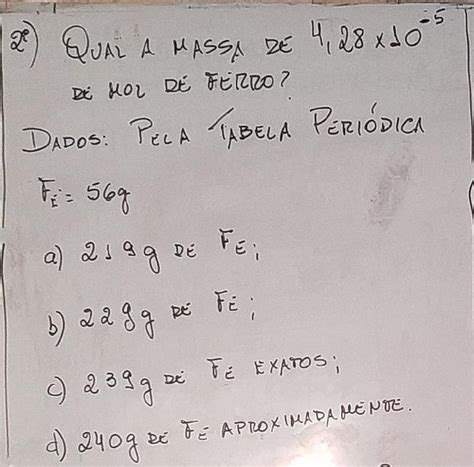 2º) QUAL A MASSA DE 4,28x10⁻⁵
DE MOL DE FERRO?
DADOS: PELA TABELA PERIÓDICA
FE = 56g
a) 219g DE FE;
b) 229g DE FE;
c) 239g DE FE EXATOS;
d) 240g DE FE APROXIMADAMENTE.